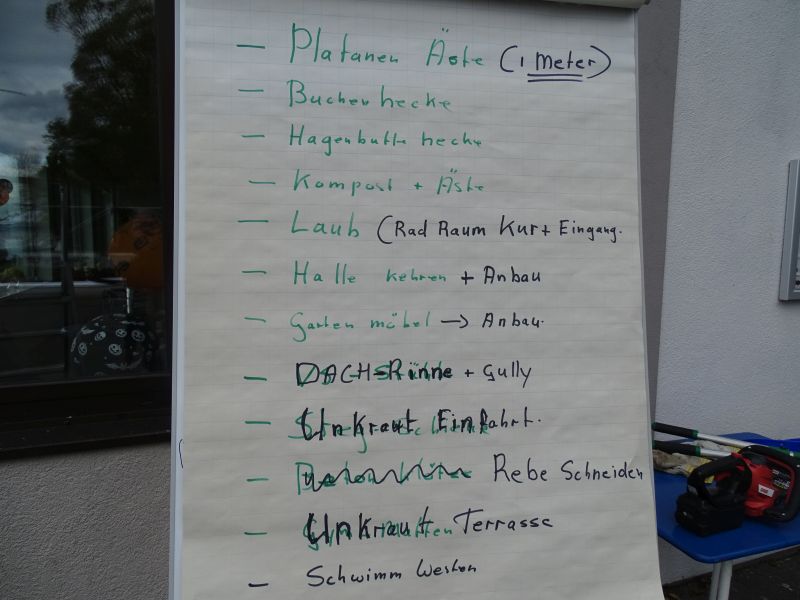 - Platanen Äste (1 Meter)
- Buchenhecke
- Hagenbutte hecke
- Kompost + Äste
- Laub (Rad Raum Kurt Eingang.
- Halle kehren + Anbau
- Garten möbel → Anbau.
- DACH-Rinne + Gully
- Unkraut Einfahrt.
- Rebe Schneiden
- Unkraut Terrasse
- Schwimm Westen